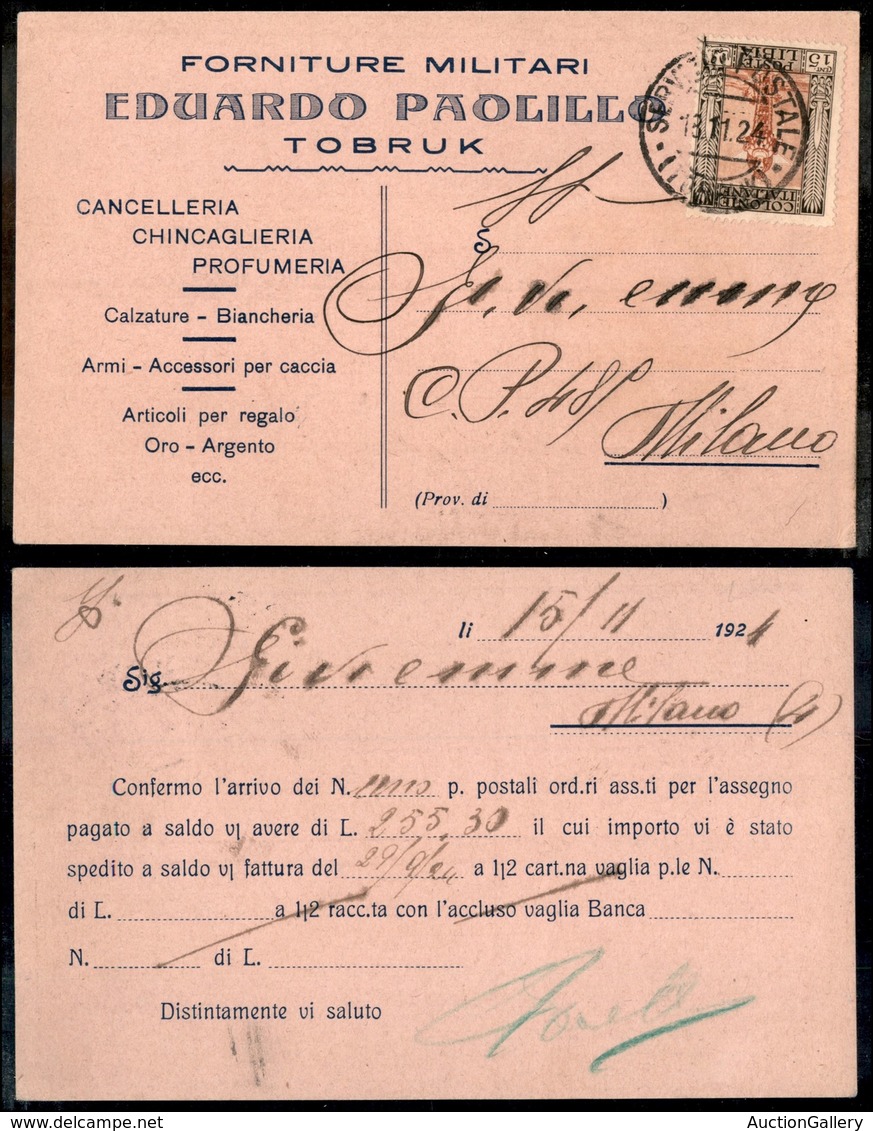 FORNITURE MILITARI
EDUARDO PAOLILLO
TOBRUK
15 POSTE 15
LIBIA
COLONIE
ITALIANE
SERVIZIO POSTALE
13.11.24
CANCELLERIA
CHINCAGLIERIA
PROFUMERIA
Calzature - Biancheria
Armi - Accessori per caccia
Articoli per regalo
Oro - Argento
ecc.
S
C. P. 481
Milano
(Prov. di )
li 15/11 1924
Sig.
Milano (4)
Confermo l'arrivo dei N. uno p. postali ord.ri ass.ti per l'assegno
pagato a saldo vı avere di L. 255,30 il cui importo vi è stato
spedito a saldo vı fattura del 29/9/24 a 1ı2 cart.na vaglia p.le N.
di L. a 1ı2 racc.ta con l'accluso vaglia Banca
N. di L.
Distintamente vi saluto
AuctionGallery